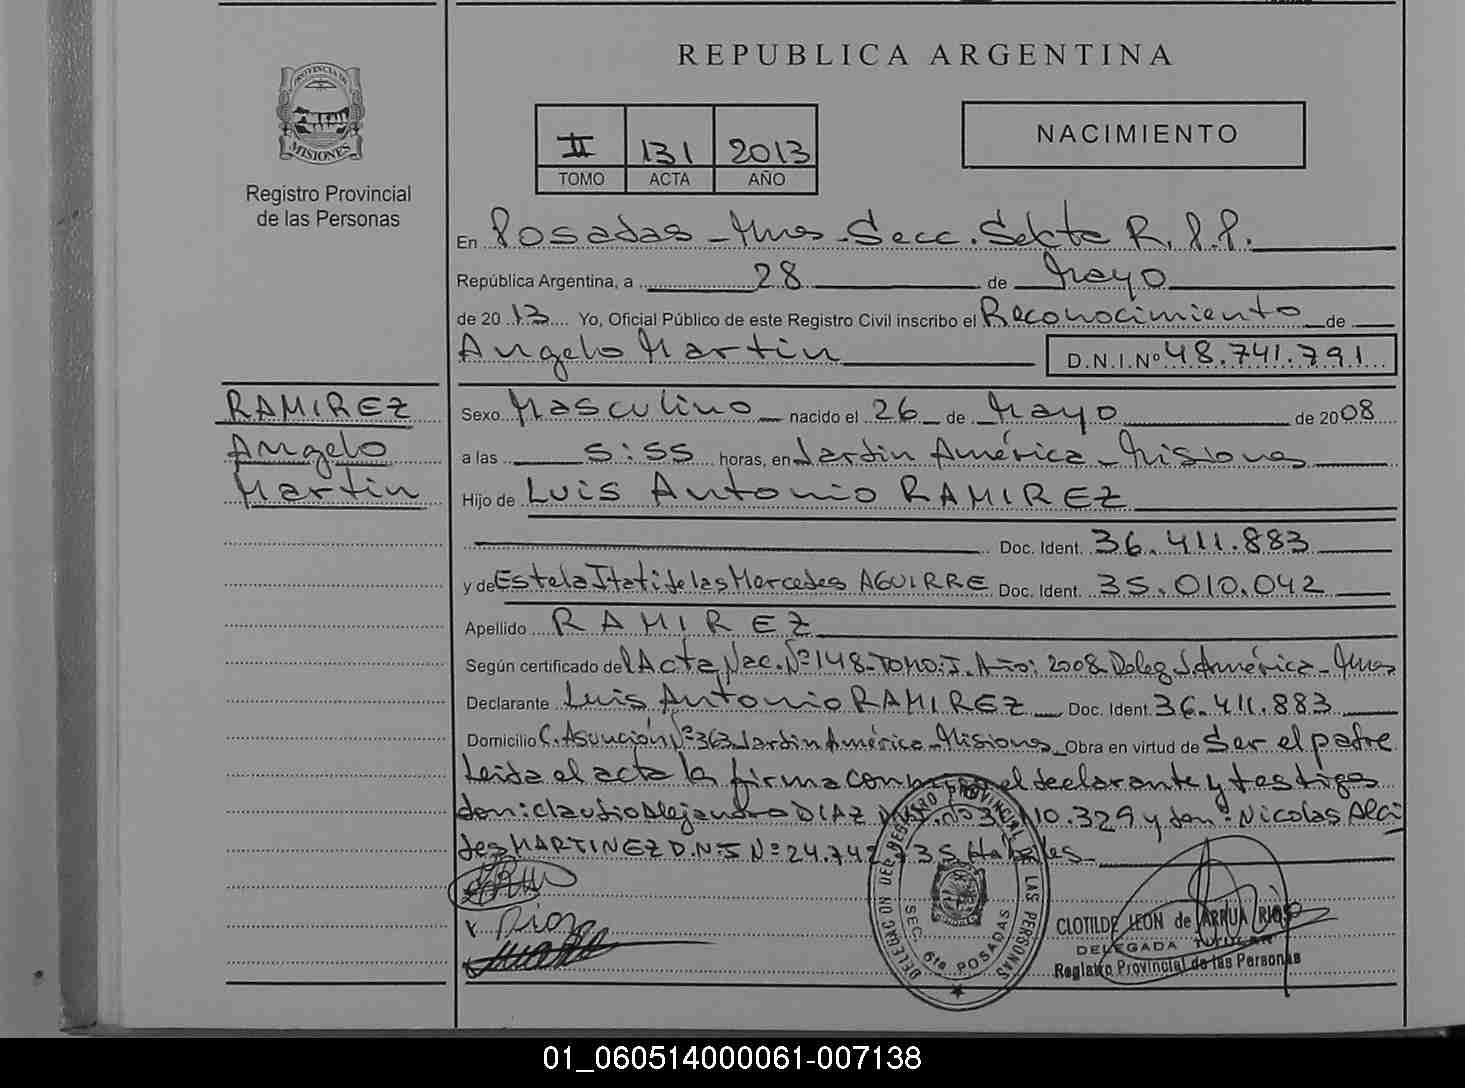 REPUBLICA ARGENTINA
PROVINCIA DE
MISIONES
Registro Provincial
de las Personas
II 131 2013
TOMO ACTA AÑO
NACIMIENTO
En Posadas - Mnes - Secc. Sekta R.P.P.
República Argentina, a 28 de Mayo
de 2013 Yo, Oficial Público de este Registro Civil inscribo el Reconocimiento de
Angelo Martin D.N.I.Nº 48.741.791
RAMIREZ
Angelo
Martin
Sexo Masculino nacido el 26 de Mayo de 2008
a las 5:55 horas, en Jardin América - Misiones
Hijo de Luis Antonio RAMIREZ
Doc. Ident. 36.411.883
y de Estela Itati de las Mercedes AGUIRRE Doc. Ident. 35.010.042
Apellido RAMIREZ
Según certificado del Acta Nac. Nº 148 - TOMO: I. Año: 2008 Deleg J. América - Mnes
Declarante Luis Antonio RAMIREZ Doc. Ident. 36.411.883
Domicilio C. Asunción Nº 363 Jardin América - Misiones Obra en virtud de Ser el padre
Leida el acta la firma el declarante y testigos
don: Claudio Alejandro DIAZ 10.329 y don: Nicolas Alci
des MARTINEZ D.N.I Nº 24.742. 35
DELEGACION DEL REGISTRO PROVINCIAL DE LAS PERSONAS
SEC. 6ta POSADAS
CLOTILDE LEON de ARRUA RIOS
DELEGADA TITULAR
Registro Provincial de las Personas
01_060514000061-007138